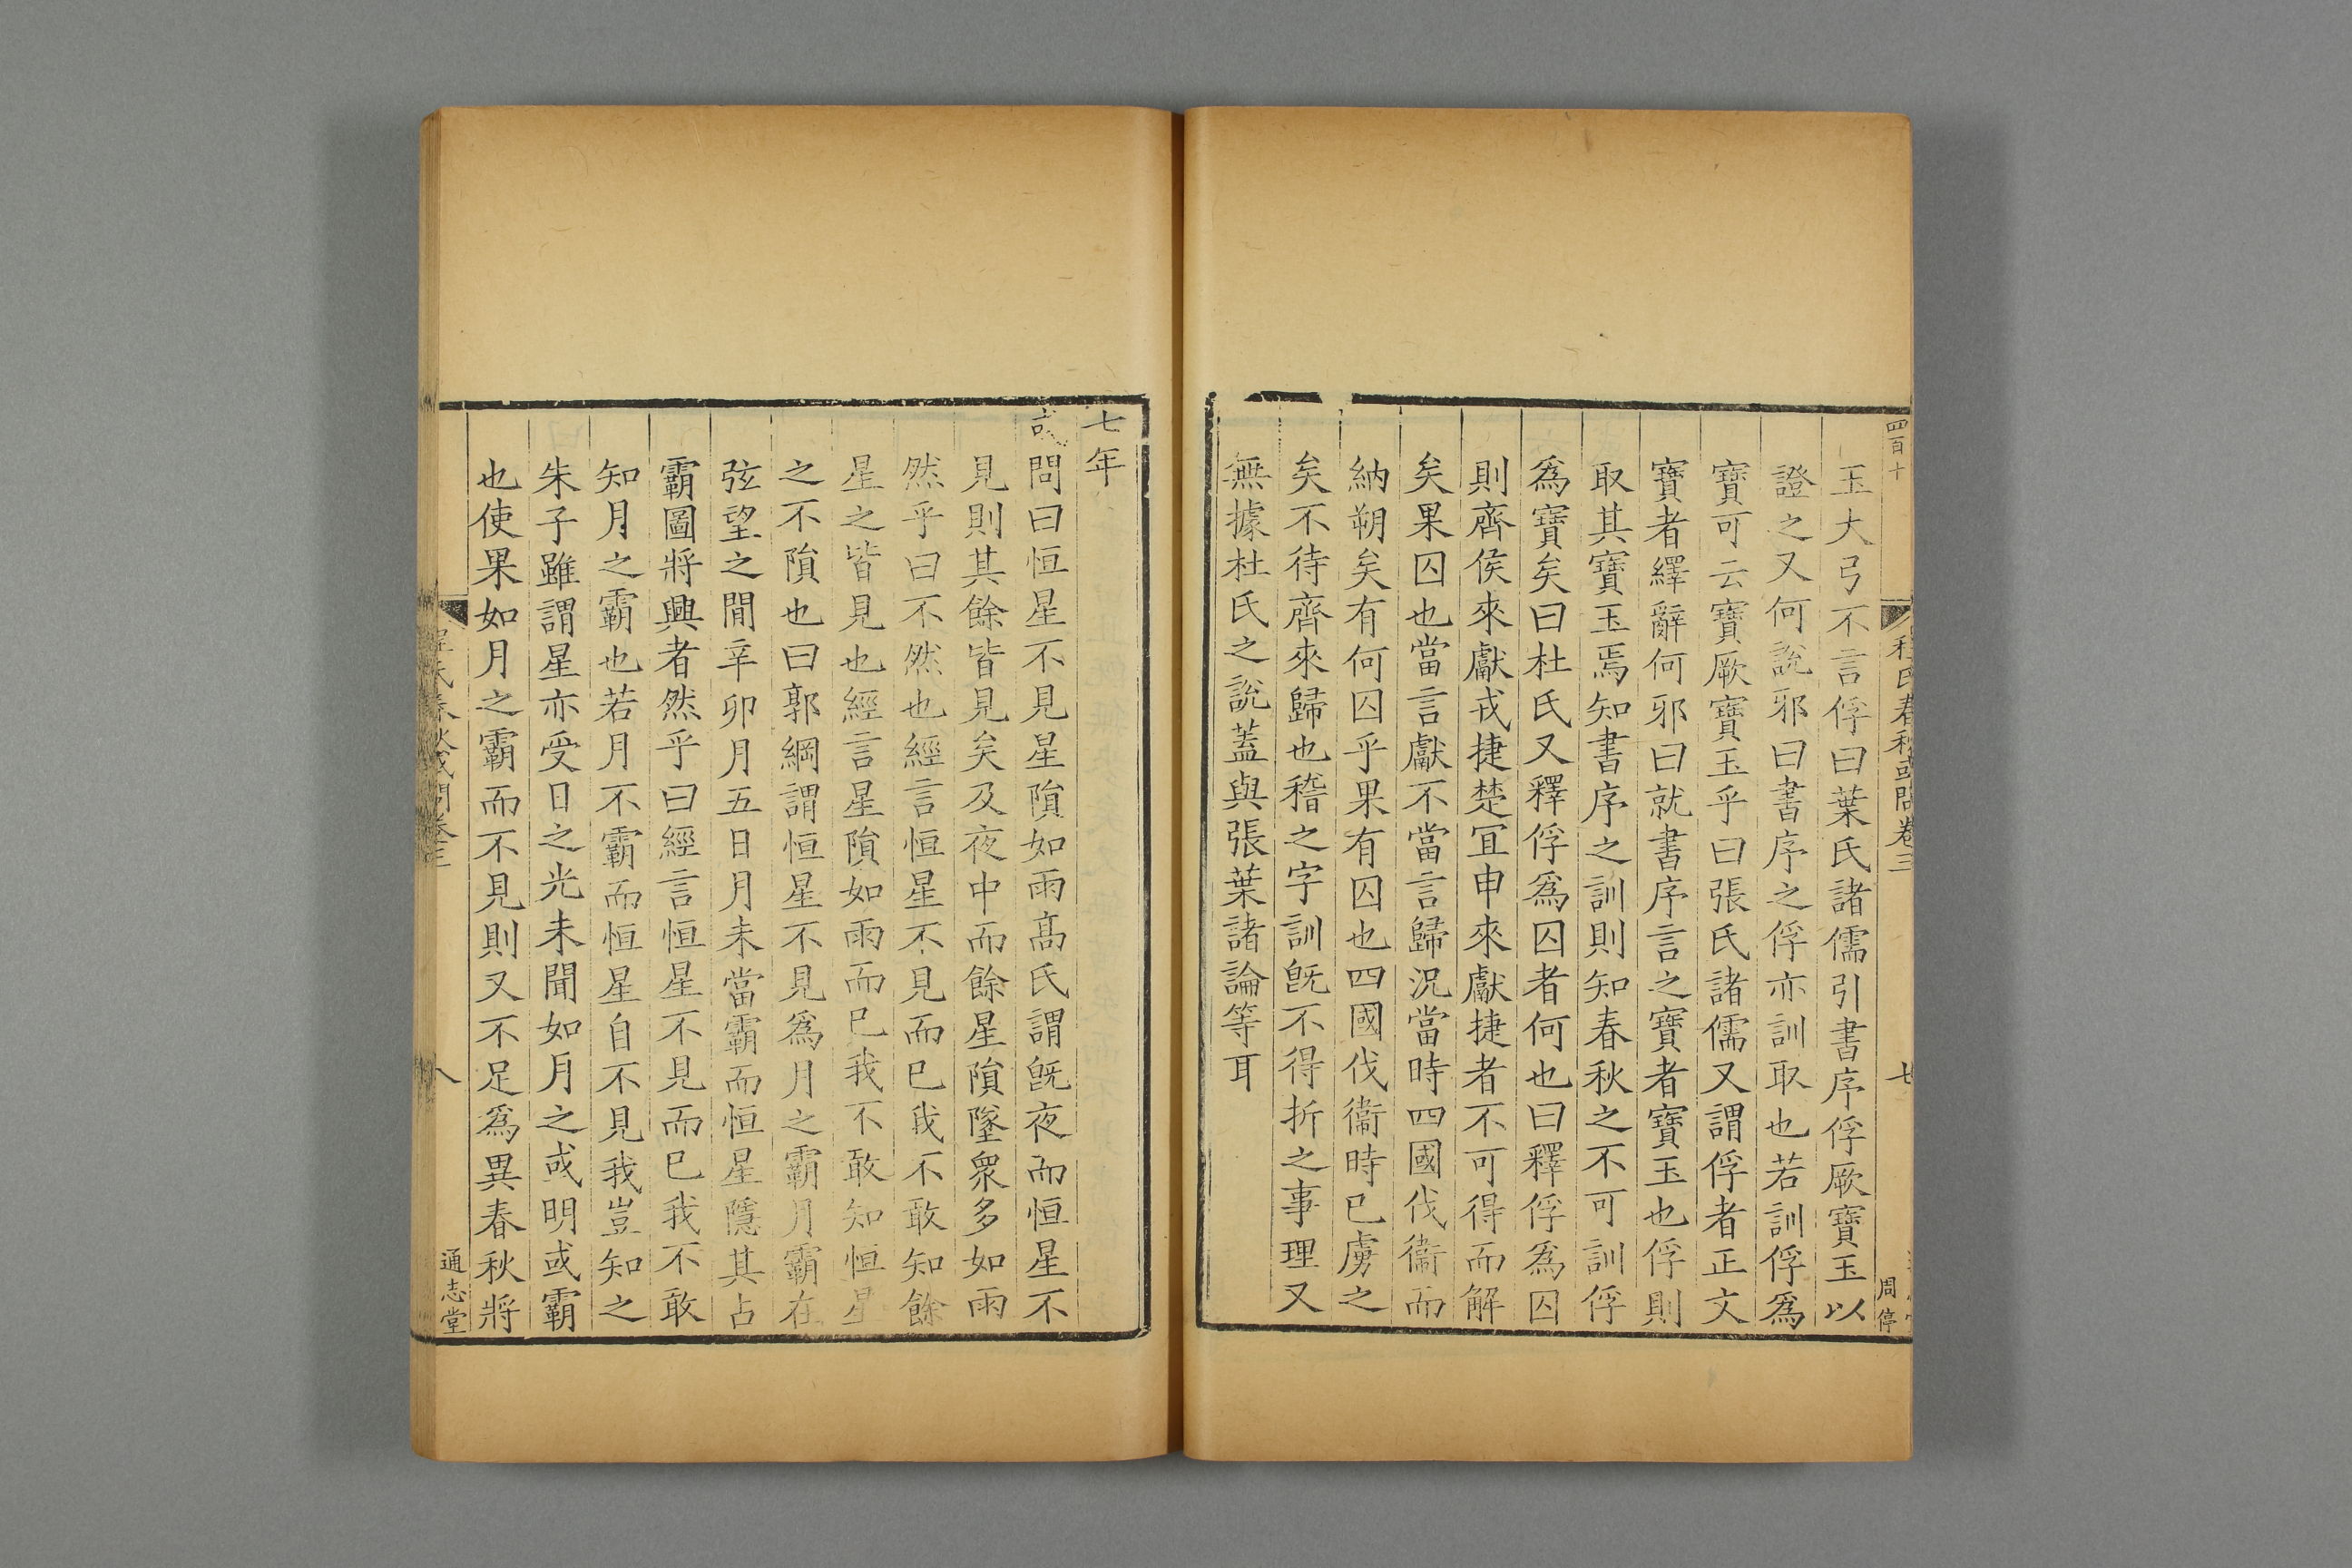 四百十
程氏春秋或問卷三
七
周停
玉大弓不言俘曰葉氏諸儒引書序俘厥寶玉以
證之又何說邪曰書序之俘亦訓取也若訓俘爲
寶可云寶厥寶玉乎曰張氏諸儒又謂俘者正文
寶者繹辭何邪曰就書序言之寶者寶玉也俘則
取其寶玉焉知書序之訓則知春秋之不可訓俘
爲寶矣曰杜氏又釋俘爲囚者何也曰釋俘爲囚
則齊侯來獻戎捷楚冝申來獻捷者不可得而解
矣果囚也當言獻不當言歸況當時四國伐衞而
納朔矣有何囚乎果有囚也四國伐衞時已虜之
矣不待齊來歸也稽之字訓旣不得折之事理又
無據杜氏之說蓋與張葉諸論等耳
七年
或問曰恒星不見星隕如雨高氏謂旣夜而恒星不
見則其餘皆見矣及夜中而餘星隕墜衆多如雨
然乎曰不然也經言恒星不見而已我不敢知餘
星之皆見也經言星隕如雨而已我不敢知恒星
之不隕也曰郭綱謂恒星不見爲月之霸月霸在
弦望之間辛卯月五日月未當霸而恒星隱其占
霸圖將興者然乎曰經言恒星不見而已我不敢
知月之霸也若月不霸而恒星自不見我豈知之
朱子雖謂星亦受日之光未聞如月之或明或霸
也使果如月之霸而不見則又不足爲異春秋將
程氏春秋或問卷三
八
通志堂